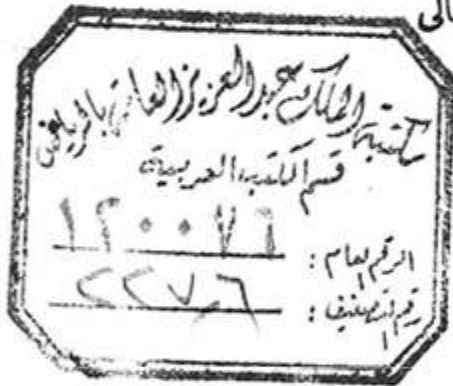 مكتبة الملك عبد العزيز العامة بالرياض
قسم الكتب العربية
الرقم العام : ١٢٠٠٧٦
رقم التصنيف : ٢٢٧,٦